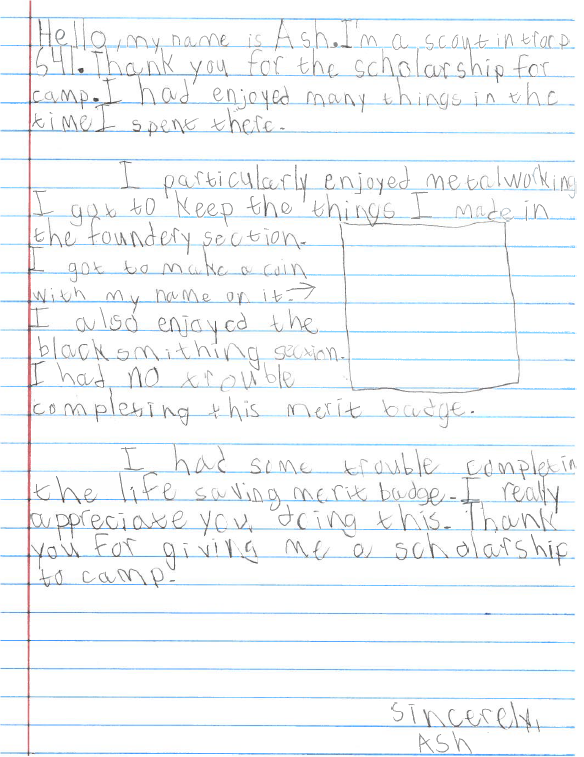 Hello, my name is Ash. I'm a scout in troop
541. Thank you for the scholarship for
camp. I had enjoyed many things in the
time I spent there.
I particularly enjoyed metalworking
I got to keep the things I made in
the foundery section.
I got to make a coin
with my name on it. →
I also enjoyed the
blacksmithing section.
I had no trouble
completing this merit badge.
I had some trouble completin
the life saving merit badge. I really
appreciate you doing this. Thank
you for giving me a scholarship
to camp.
Sincerely,
Ash